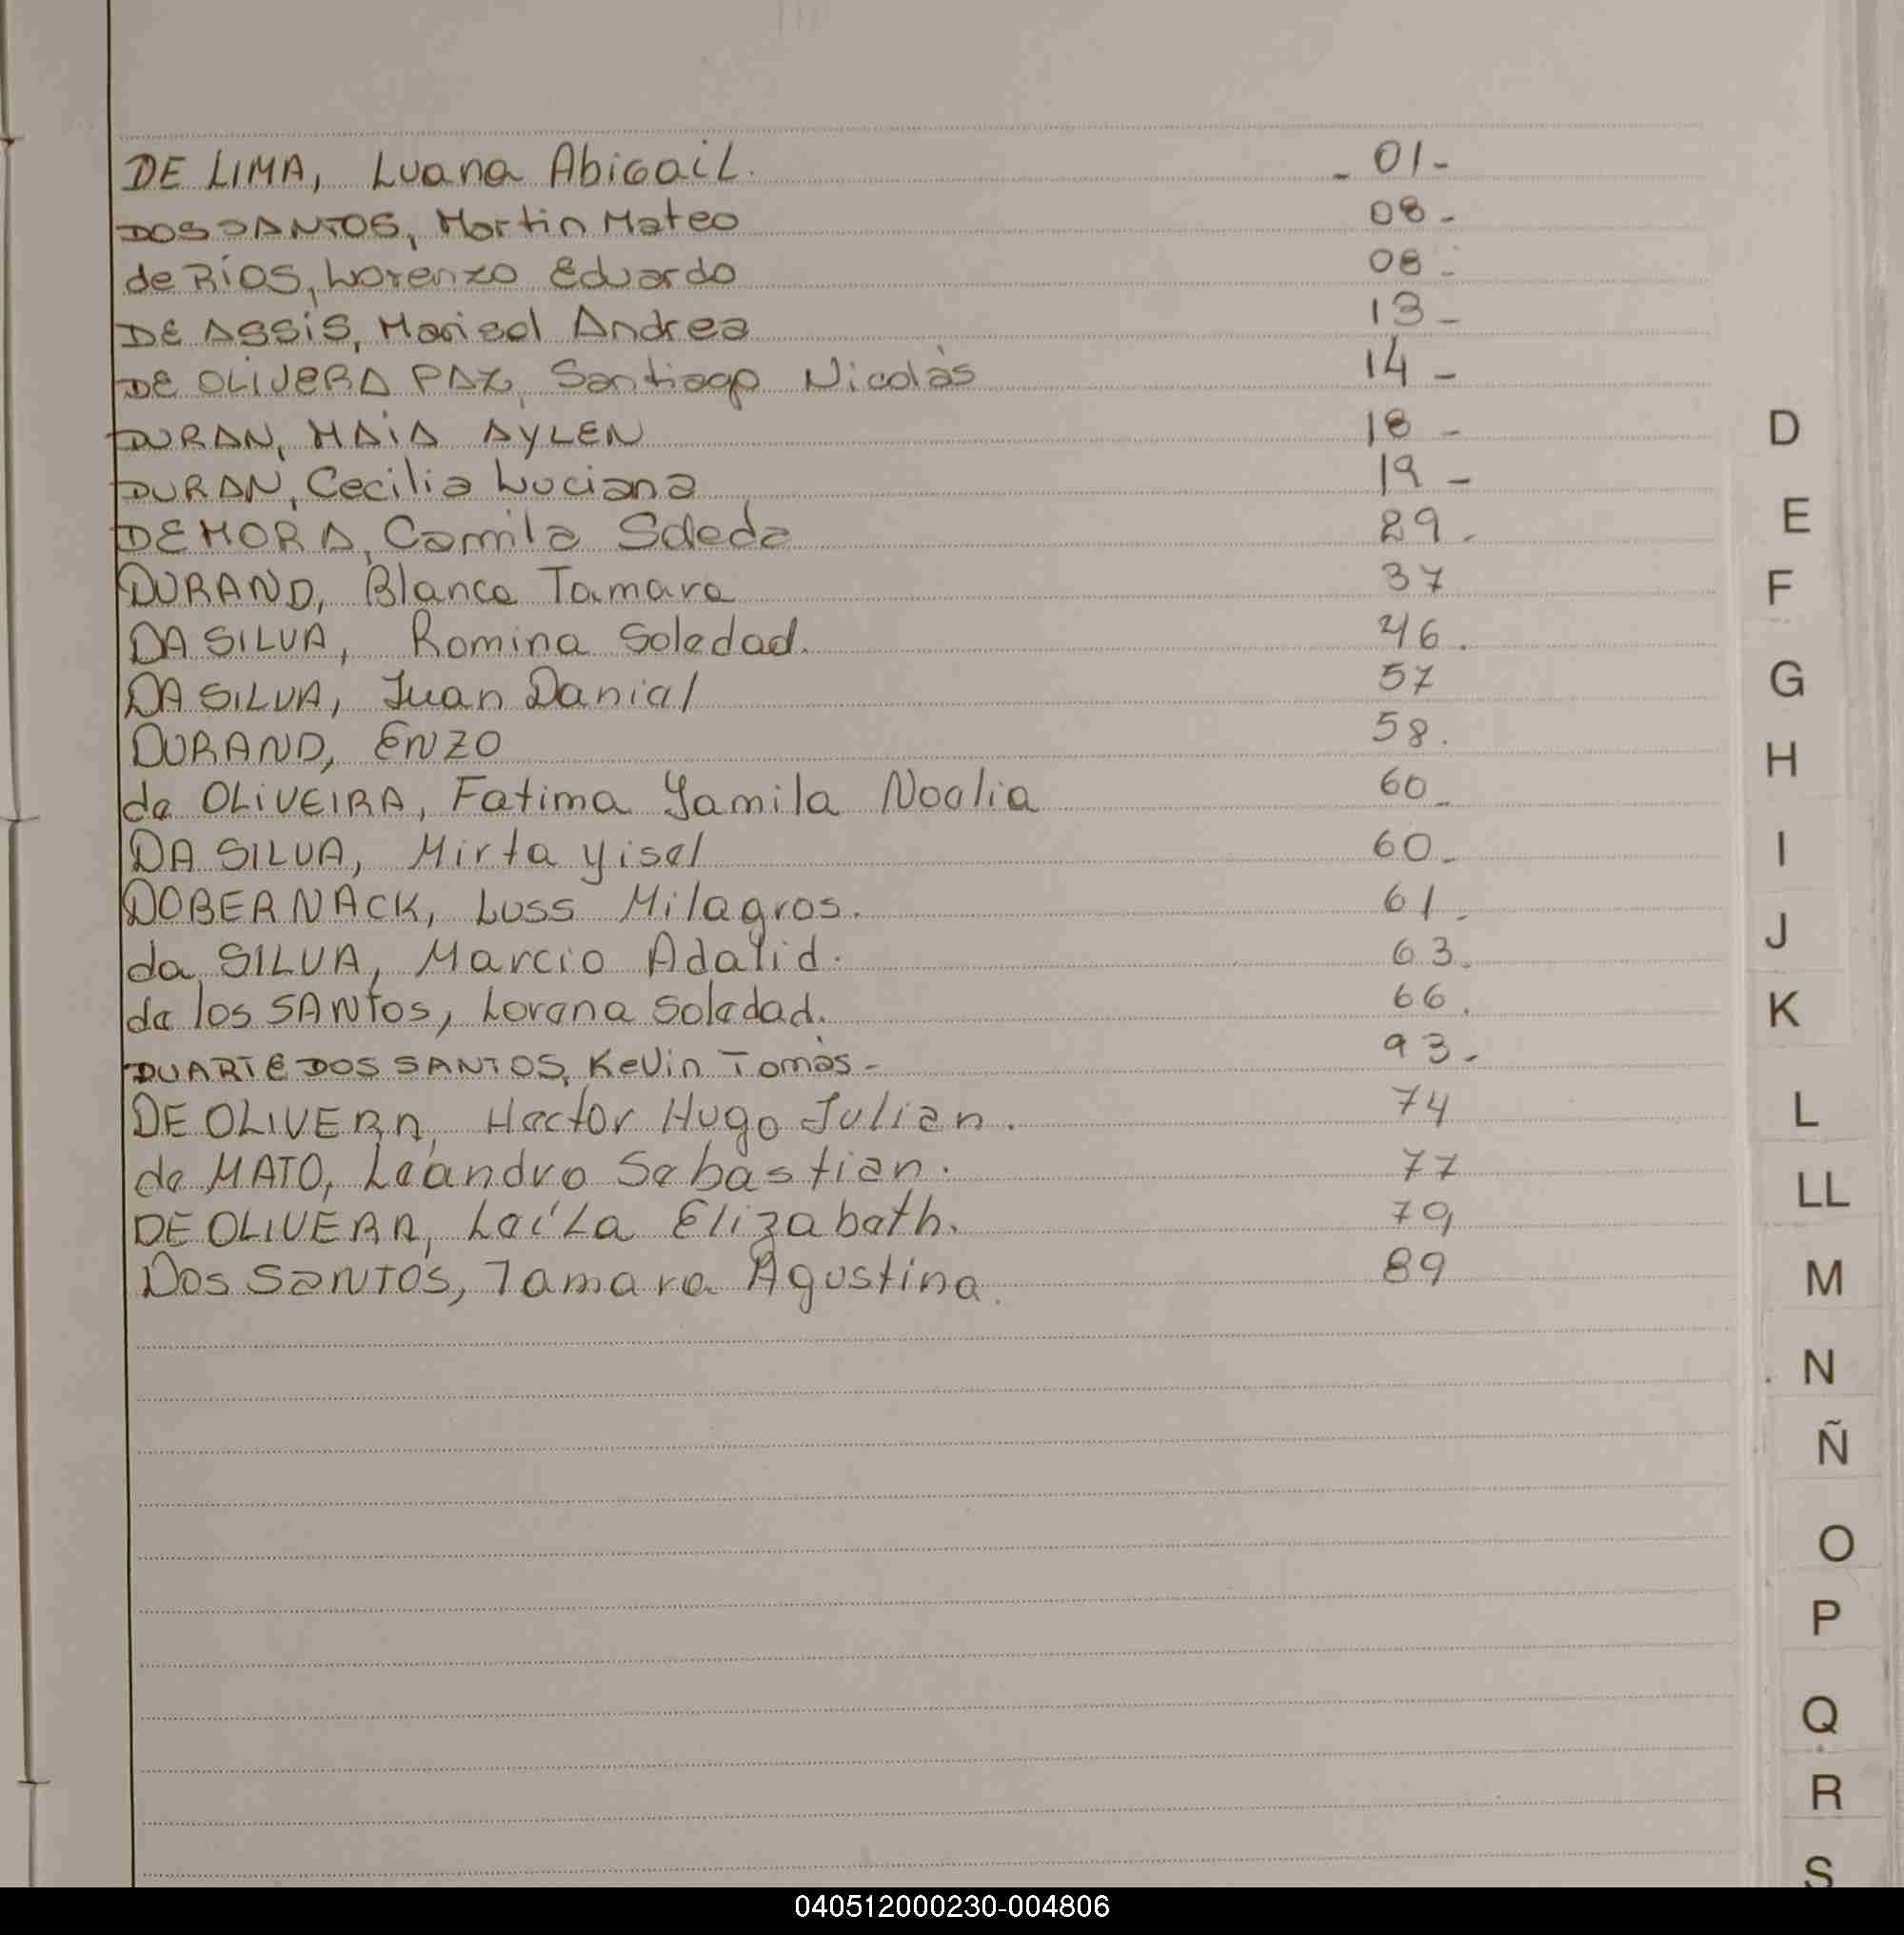 DE LIMA, Luana Abigail. - 01-
DOS SANTOS, Martin Mateo 08-
de RíOS, Lorenzo Eduardo 08-
DE ASSiS, Marisol Andrea 13-
DE OLIVERA PAZ, Santiago Nicolás 14-
DURAN, MAiA AYLEN 18-
DURAN, Cecilia Luciana 19-
DEMORA, Camila Soleda 29.
DURAND, Blanca Tamara 37
DA SILVA, Romina Soledad. 46.
DA SILVA, Juan Daniel 57
DURAND, ENZO 58.
de OLiVEIRA, Fatima Yamila Noelia 60-
DA SILVA, Mirta Yisel 60-
DOBERNACK, Luss Milagros. 61-
da SILVA, Marcio Adalid. 63.
de los SANTOS, Lorena Soledad. 66.
DUARTE DOS SANTOS, Kevin Tomás- 93-
DE OLIVERA, Hector Hugo Julian. 74
de MATO, Leandro Sebastian. 77
DE OLIVERA, Leila Elizabeth. 79
DOS SANTOS, Tamara Agustina. 89
D
E
F
G
H
I
J
K
L
LL
M
N
Ñ
O
P
Q
R
S
040512000230-004806